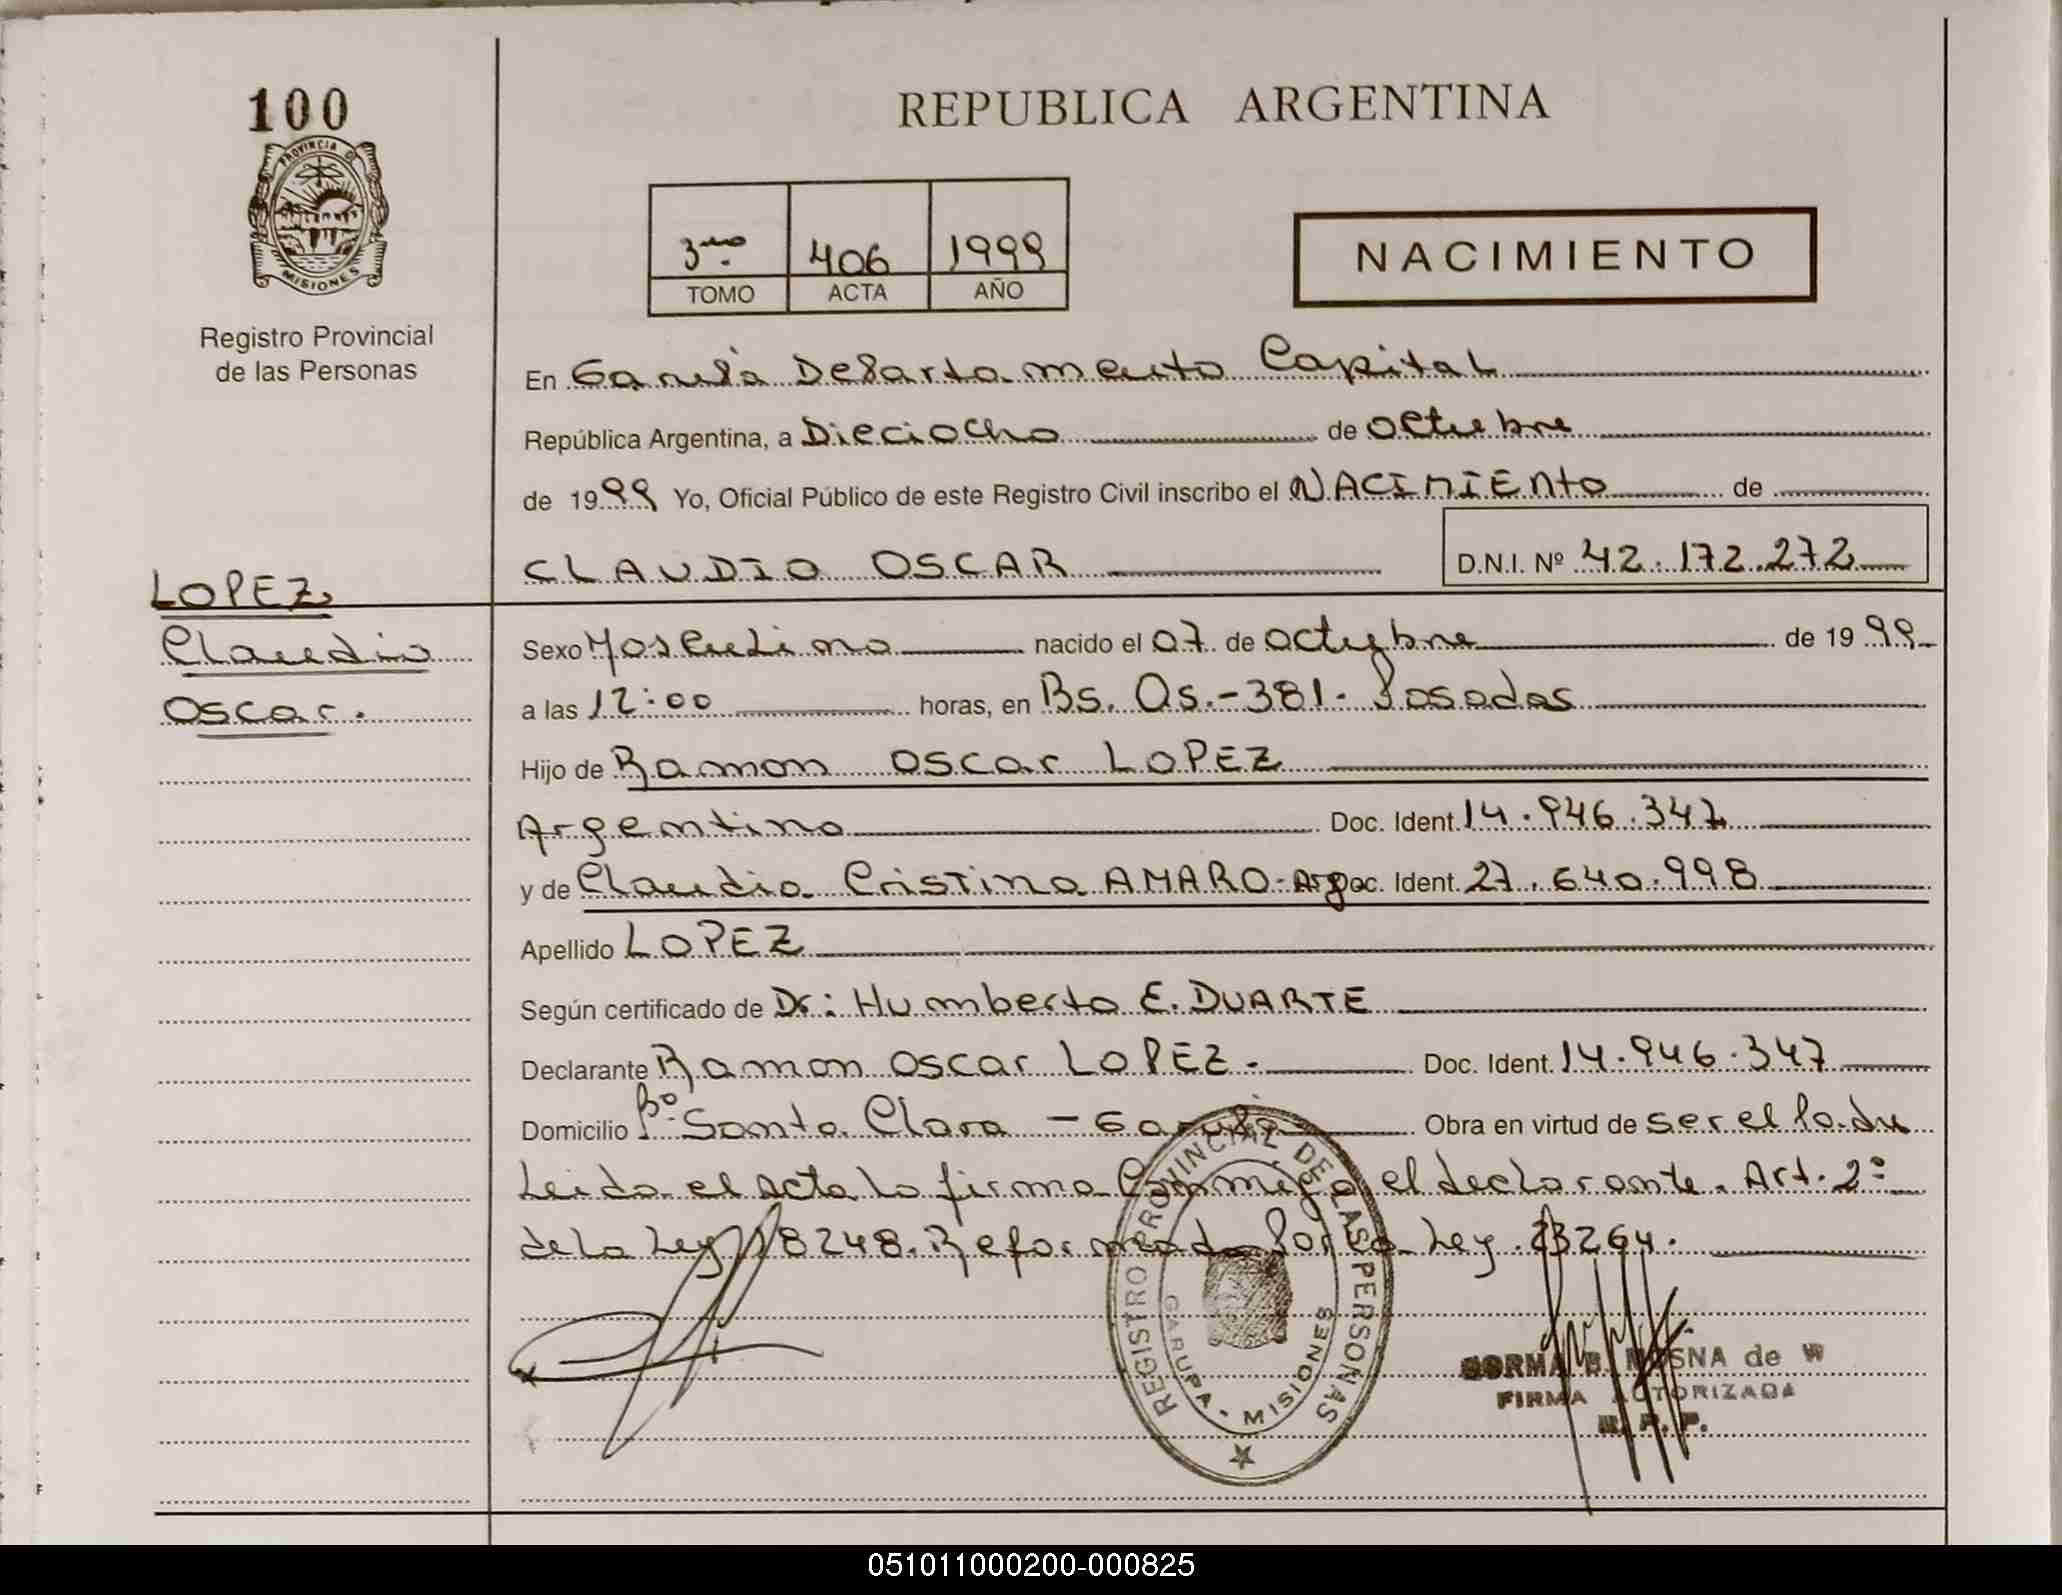 100
REPUBLICA ARGENTINA
PROVINCIA D
MISIONES
Registro Provincial
de las Personas
3ro 406 1999
TOMO ACTA AÑO
NACIMIENTO
En Garupá Departamento Capital
República Argentina, a Dieciocho de octubre
de 1999 Yo, Oficial Público de este Registro Civil inscribo el NACIMIENto de
CLAUDIO OSCAR D.N.I. Nº 42.172.272
LOPEZ
Claudio
Oscar.
Sexo Masculino nacido el 07 de octubre de 1999
a las 12:00 horas, en Bs. As.-381- Posadas
Hijo de Ramon oscar LOPEZ
Argentino Doc. Ident. 14.946.347
y de Claudia Cristina AMARO-Arg Doc. Ident. 27.640.998
Apellido LOPEZ
Según certificado de Dr: Humberto E. DUARTE
Declarante Ramon oscar LOPEZ. Doc. Ident. 14.946.347
Domicilio Bº. Santa Clara - Garupá Obra en virtud de ser el Padre
Leida el acta la firma Conmigo el declarante. Art. 2º
de la Ley 18248. Reformado Por la Ley 23264.
REGISTRO PROVINCIAL DE LAS PERSONAS
GARUPA - MISIONES
NORMA B. MOSNA de W
FIRMA AUTORIZADA
R. P. P.
051011000200-000825